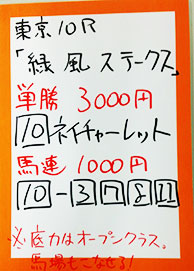 東京10R
「緑風ステークス」
単勝 3000円
10ネイチャーレット
馬連 1000円
10-3781
※底力はオープンクラス。
馬場もこなせる!